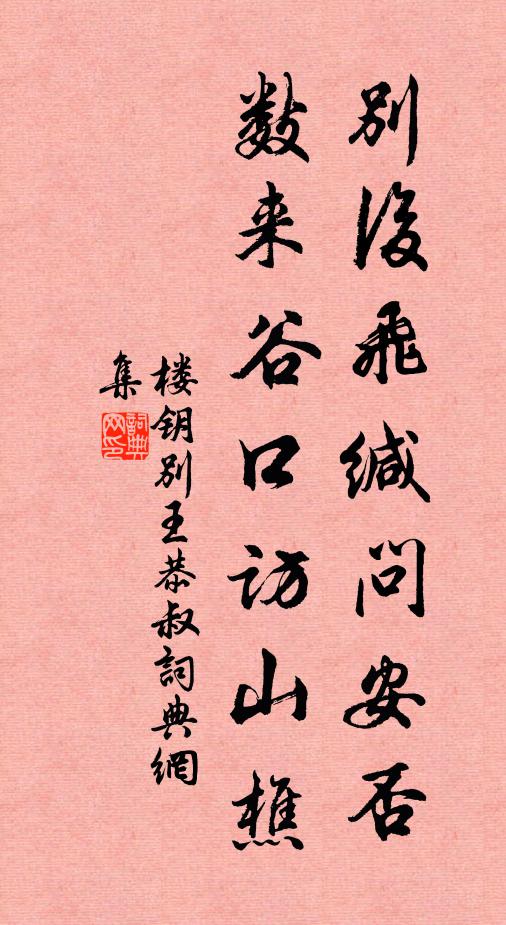 别後飛缄问安否
数来谷口访山樵
楼钥别王恭叔詞典網
集
詞典
网印